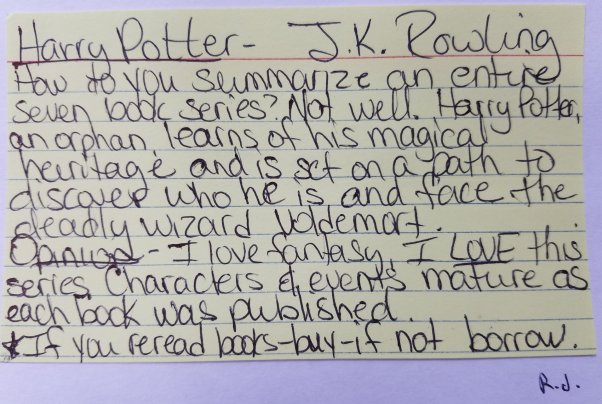 Harry Potter- J.K. Rowling
How to you summarize an entire
seven book series? Not well. Harry Potter,
an orphan, learns of his magical
heuritage and is set on a path to
discover who he is and face the
deadly wizard Voldemort.
Opinion - I love fantasy, I LOVE this
series. Characters & events mature as
each book was published.
*If you reread books-buy-if not borrow.
R.J.